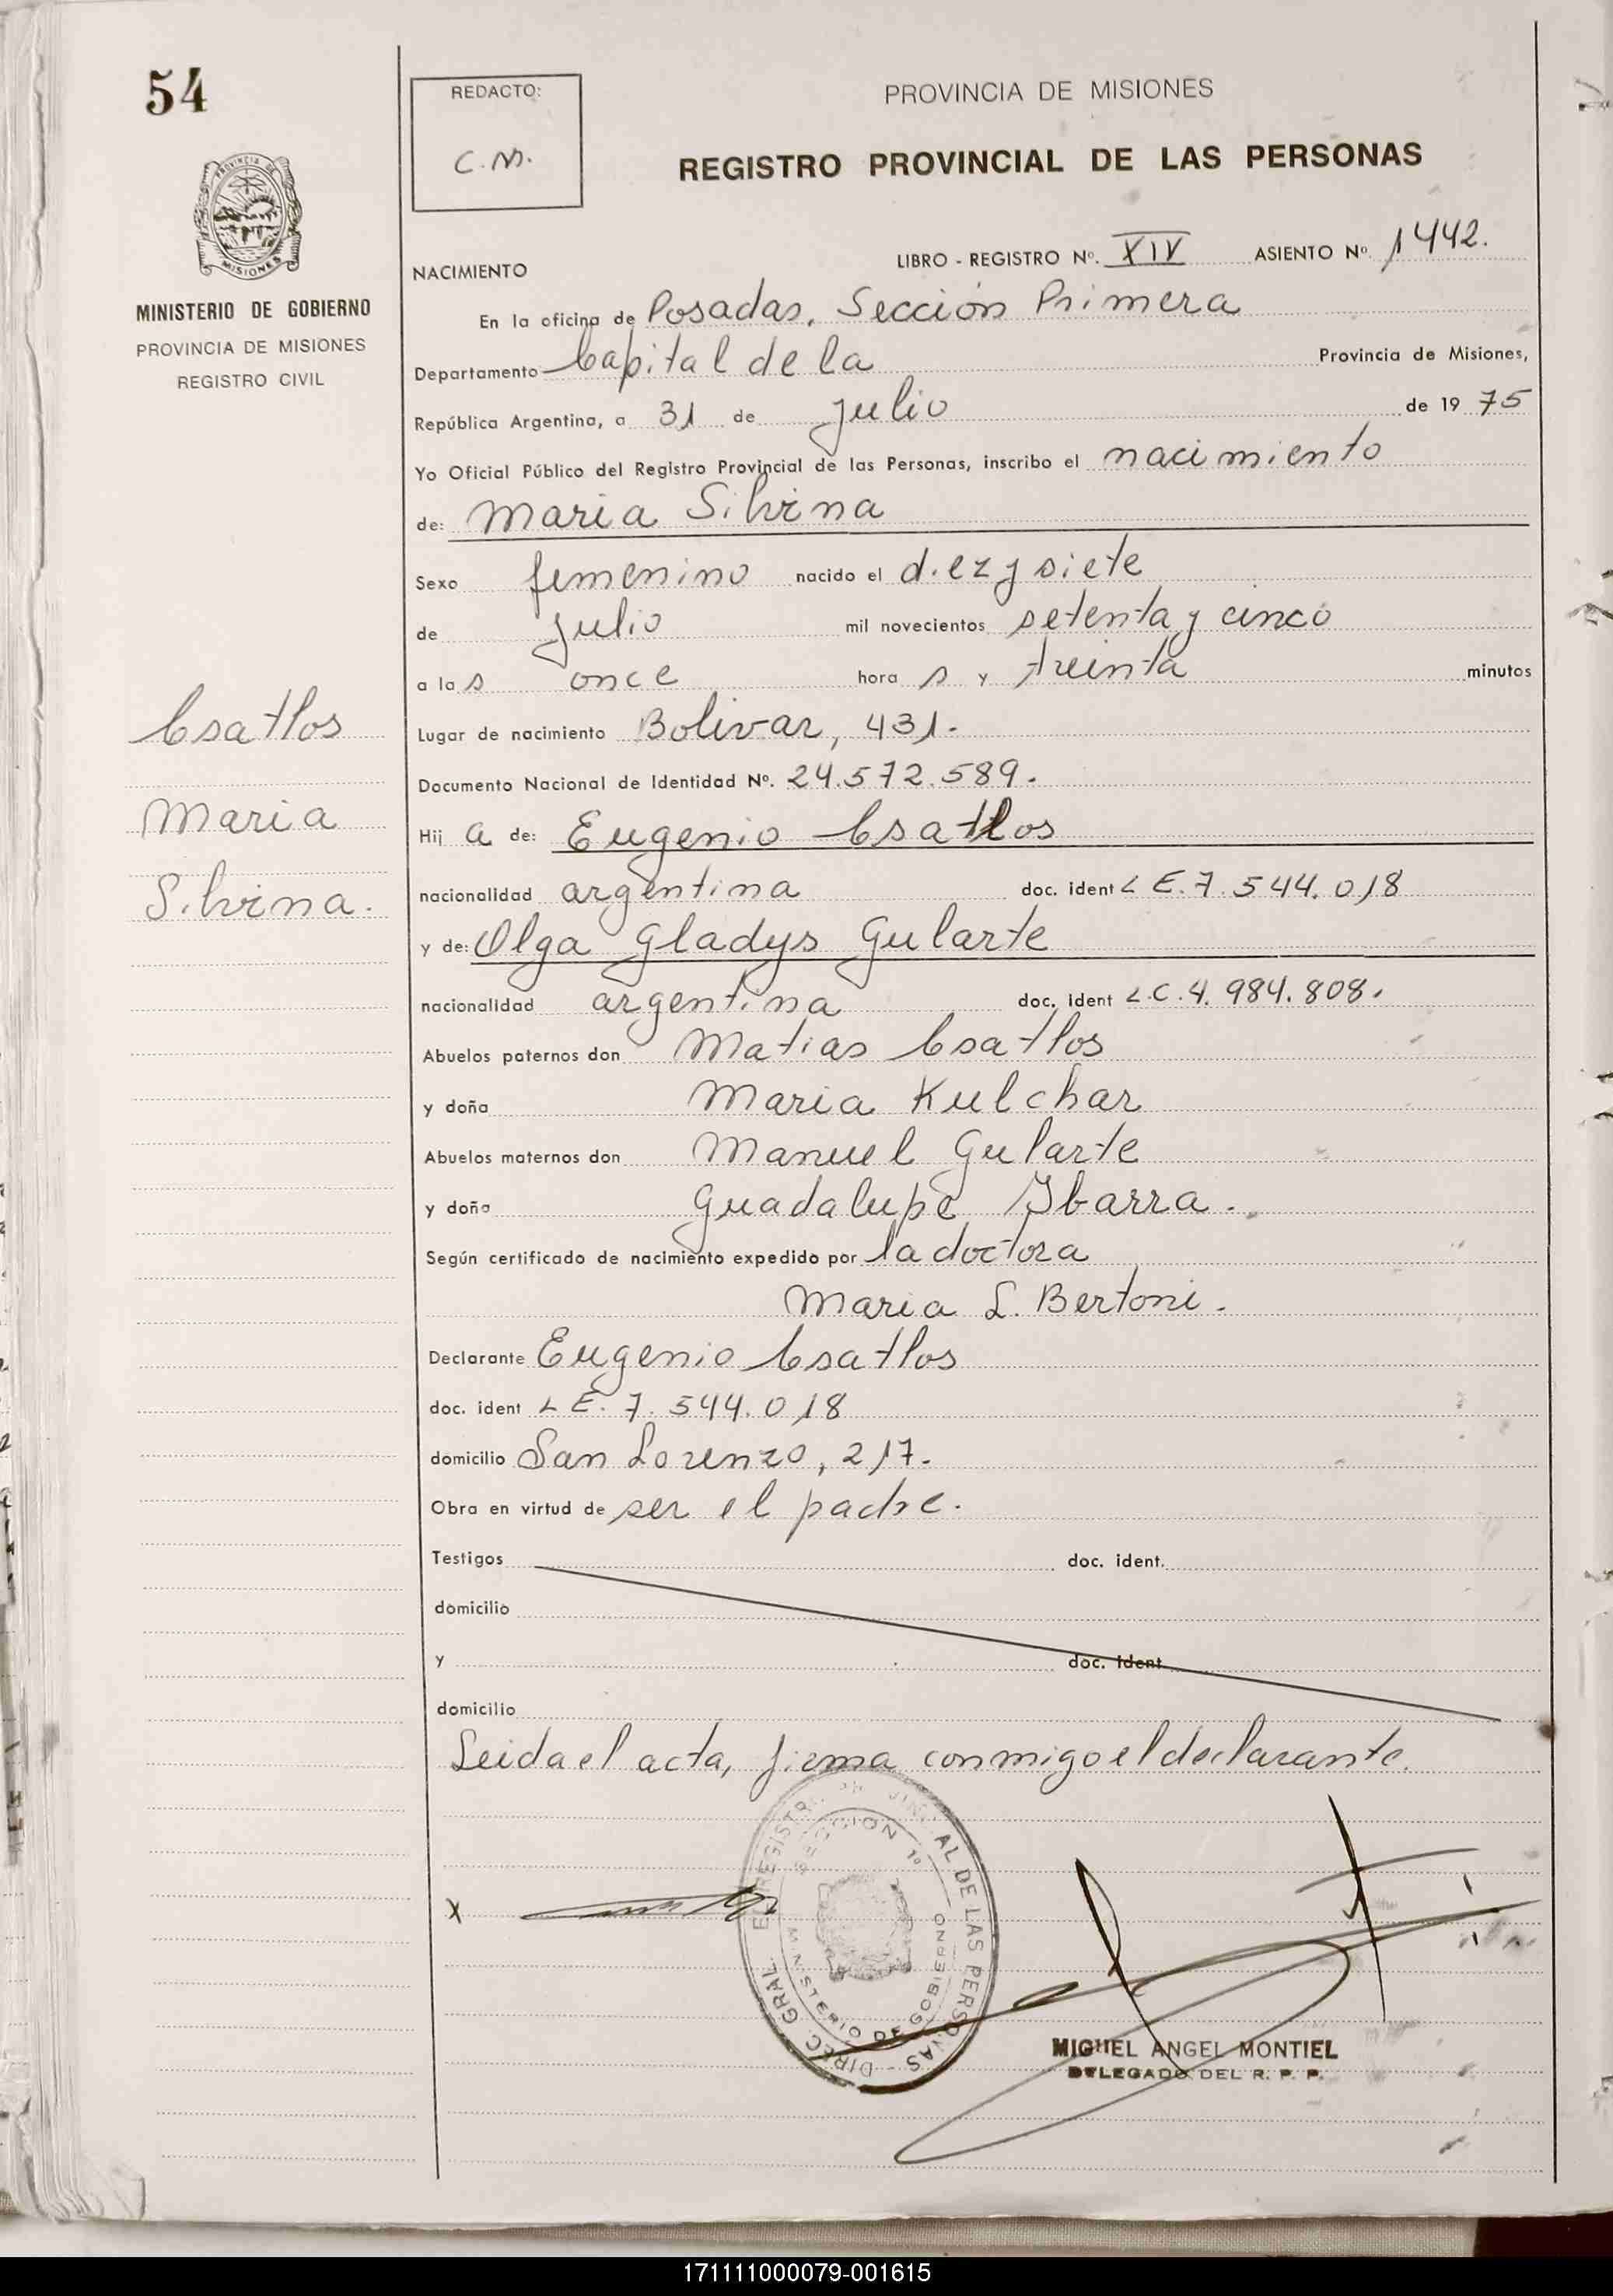 54
REDACTO:
C.M.
PROVINCIA DE MISIONES
REGISTRO PROVINCIAL DE LAS PERSONAS
MISIONES
MINISTERIO DE GOBIERNO
PROVINCIA DE MISIONES
REGISTRO CIVIL
NACIMIENTO
LIBRO - REGISTRO Nº. XIV ASIENTO Nº 1442.
En la oficina de Posadas, Sección Primera
Departamento Capital de la Provincia de Misiones,
República Argentina, a 31 de julio de 1975
Yo Oficial Público del Registro Provincial de las Personas, inscribo el nacimiento
de: Maria Silvina
Sexo femenino nacido el diez y siete
de julio mil novecientos setenta y cinco
a las once horas y treinta minutos
Csatlos
Lugar de nacimiento Bolivar, 431.
Documento Nacional de Identidad Nº. 24.572.589.
Maria
Hija de: Eugenio Csatlos
Silvina.
nacionalidad argentina doc. ident L E. 7.544.018
y de: Olga Gladys Gularte
nacionalidad argentina doc. ident L.C. 4.984.808.
Abuelos paternos don Matias Csatlos
y doña Maria Kulchar
Abuelos maternos don Manuel Gularte
y doña Guadalupe Ybarra.
Según certificado de nacimiento expedido por la doctora
Maria L. Bertoni.
Declarante Eugenio Csatlos
doc. ident L E. 7.544.018
domicilio San Lorenzo, 217.
Obra en virtud de ser el padre.
Testigos doc. ident.
domicilio
y doc. ident
domicilio
Leida el acta, firma conmigo el declarante.
X
DIREC. GRAL. DE LAS PERSONAS
SECCION 1º
MINISTERIO DE GOBIERNO
MIGUEL ANGEL MONTIEL
DELEGADO DEL R. P. P.
171111000079-001615